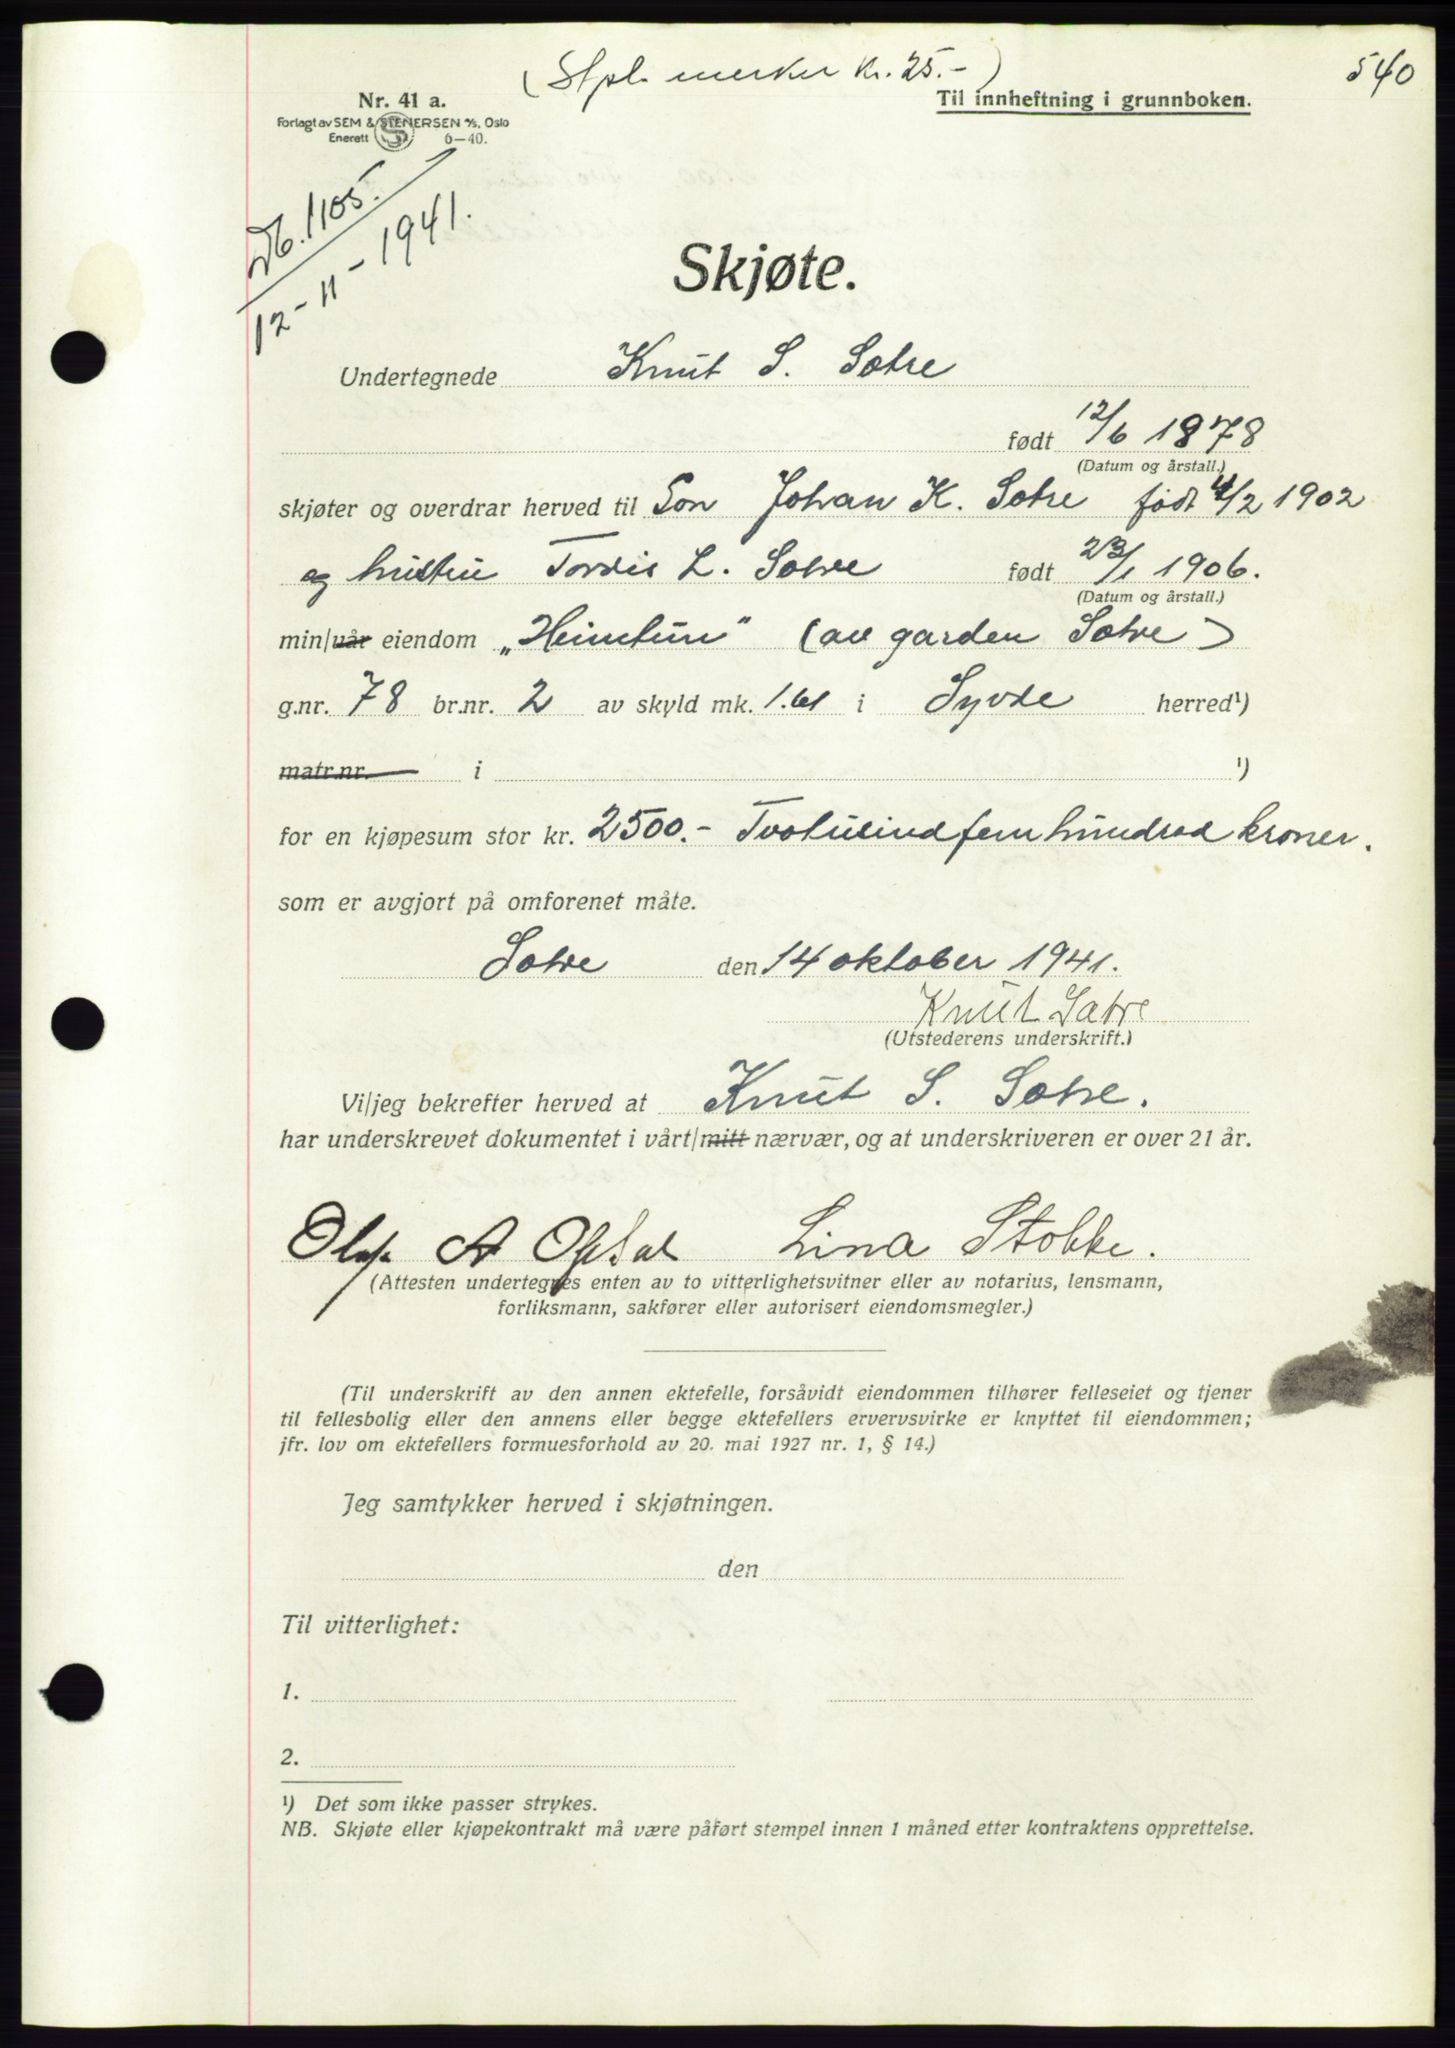 (Stpl. merker kr. 25.-)
540
Nr. 41 a.
Til innheftning i grunnboken.
Forlagt av SEM & STENERSEN A/S, Oslo
Enerett 6—40.
Db. 1105.
12-11-1941.
Skjøte.
Undertegnede Knut S. Sætre
født 12/6 1878
(Datum og årstall.)
skjøter og overdrar herved til Son Johan K. Sætre født 4/2 1902
og hustru Tordis L. Sætre født 23/1 1906.
(Datum og årstall.)
min/vår eiendom „Heimtun" (av garden Sætre)
g.nr. 78 br.nr. 2 av skyld mk. 1.61 i Syvde herred¹)
matr.nr. i ¹)
for en kjøpesum stor kr. 2500.- Tvotusindfemhundrad kroner.
som er avgjort på omforenet måte.
Sætre den 14 oktober 1941.
Knut Sætre
(Utstederens underskrift.)
Vi/jeg bekrefter herved at Knut S. Sætre.
har underskrevet dokumentet i vårt/mitt nærvær, og at underskriveren er over 21 år.
Olaf A Opsal Lina Stokke.
(Attesten undertegnes enten av to vitterlighetsvitner eller av notarius, lensmann,
forliksmann, sakfører eller autorisert eiendomsmegler.)
(Til underskrift av den annen ektefelle, forsåvidt eiendommen tilhører felleseiet og tjener
til fellesbolig eller den annens eller begge ektefellers ervervsvirke er knyttet til eiendommen;
jfr. lov om ektefellers formuesforhold av 20. mai 1927 nr. 1, § 14.)
Jeg samtykker herved i skjøtningen.
den
Til vitterlighet:
1.
2.
¹) Det som ikke passer strykes.
NB. Skjøte eller kjøpekontrakt må være påført stempel innen 1 måned etter kontraktens opprettelse.